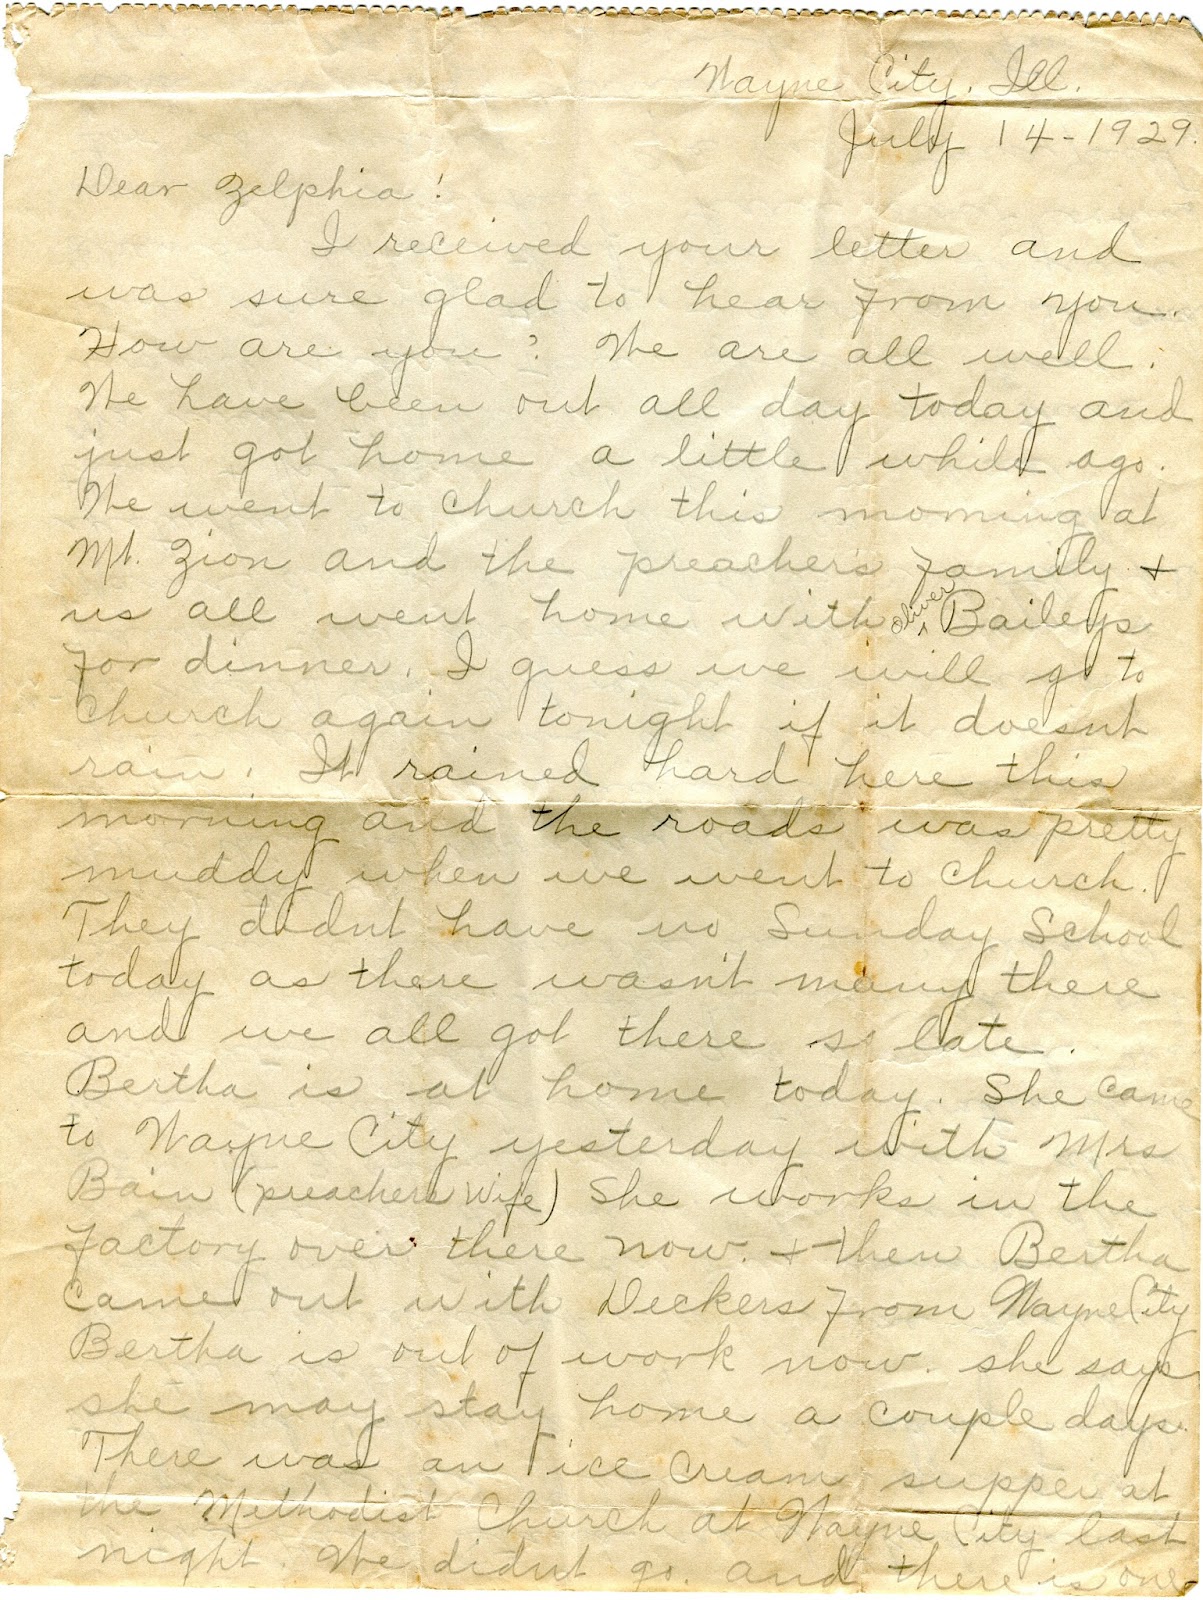 Wayne City, Ill.
July 14-1929.
Dear Zelphia!
I received your letter and
was sure glad to hear from you.
How are you? We are all well.
We have been out all day today and
just got home a little while ago.
We went to church this morning at
Mt. Zion and the preachers family +
us all went home with Oliver Baileys
for dinner. I guess we will go to
church again tonight if it doesnt
rain. It rained hard here this
morning and the roads was pretty
muddy when we went to church.
They didnt have no Sunday School
today as there wasn't many there
and we all got there so late.
Bertha is at home today. She came
to Wayne City yesterday with Mrs
Bain (preachers wife) She works in the
factory over there now. + then Bertha
came out with Deckers from Wayne City
Bertha is out of work now. she says
she may stay home a couple days.
There was an ice cream supper at
the Methodist Church at Wayne City last
night. We didnt go. and there is one